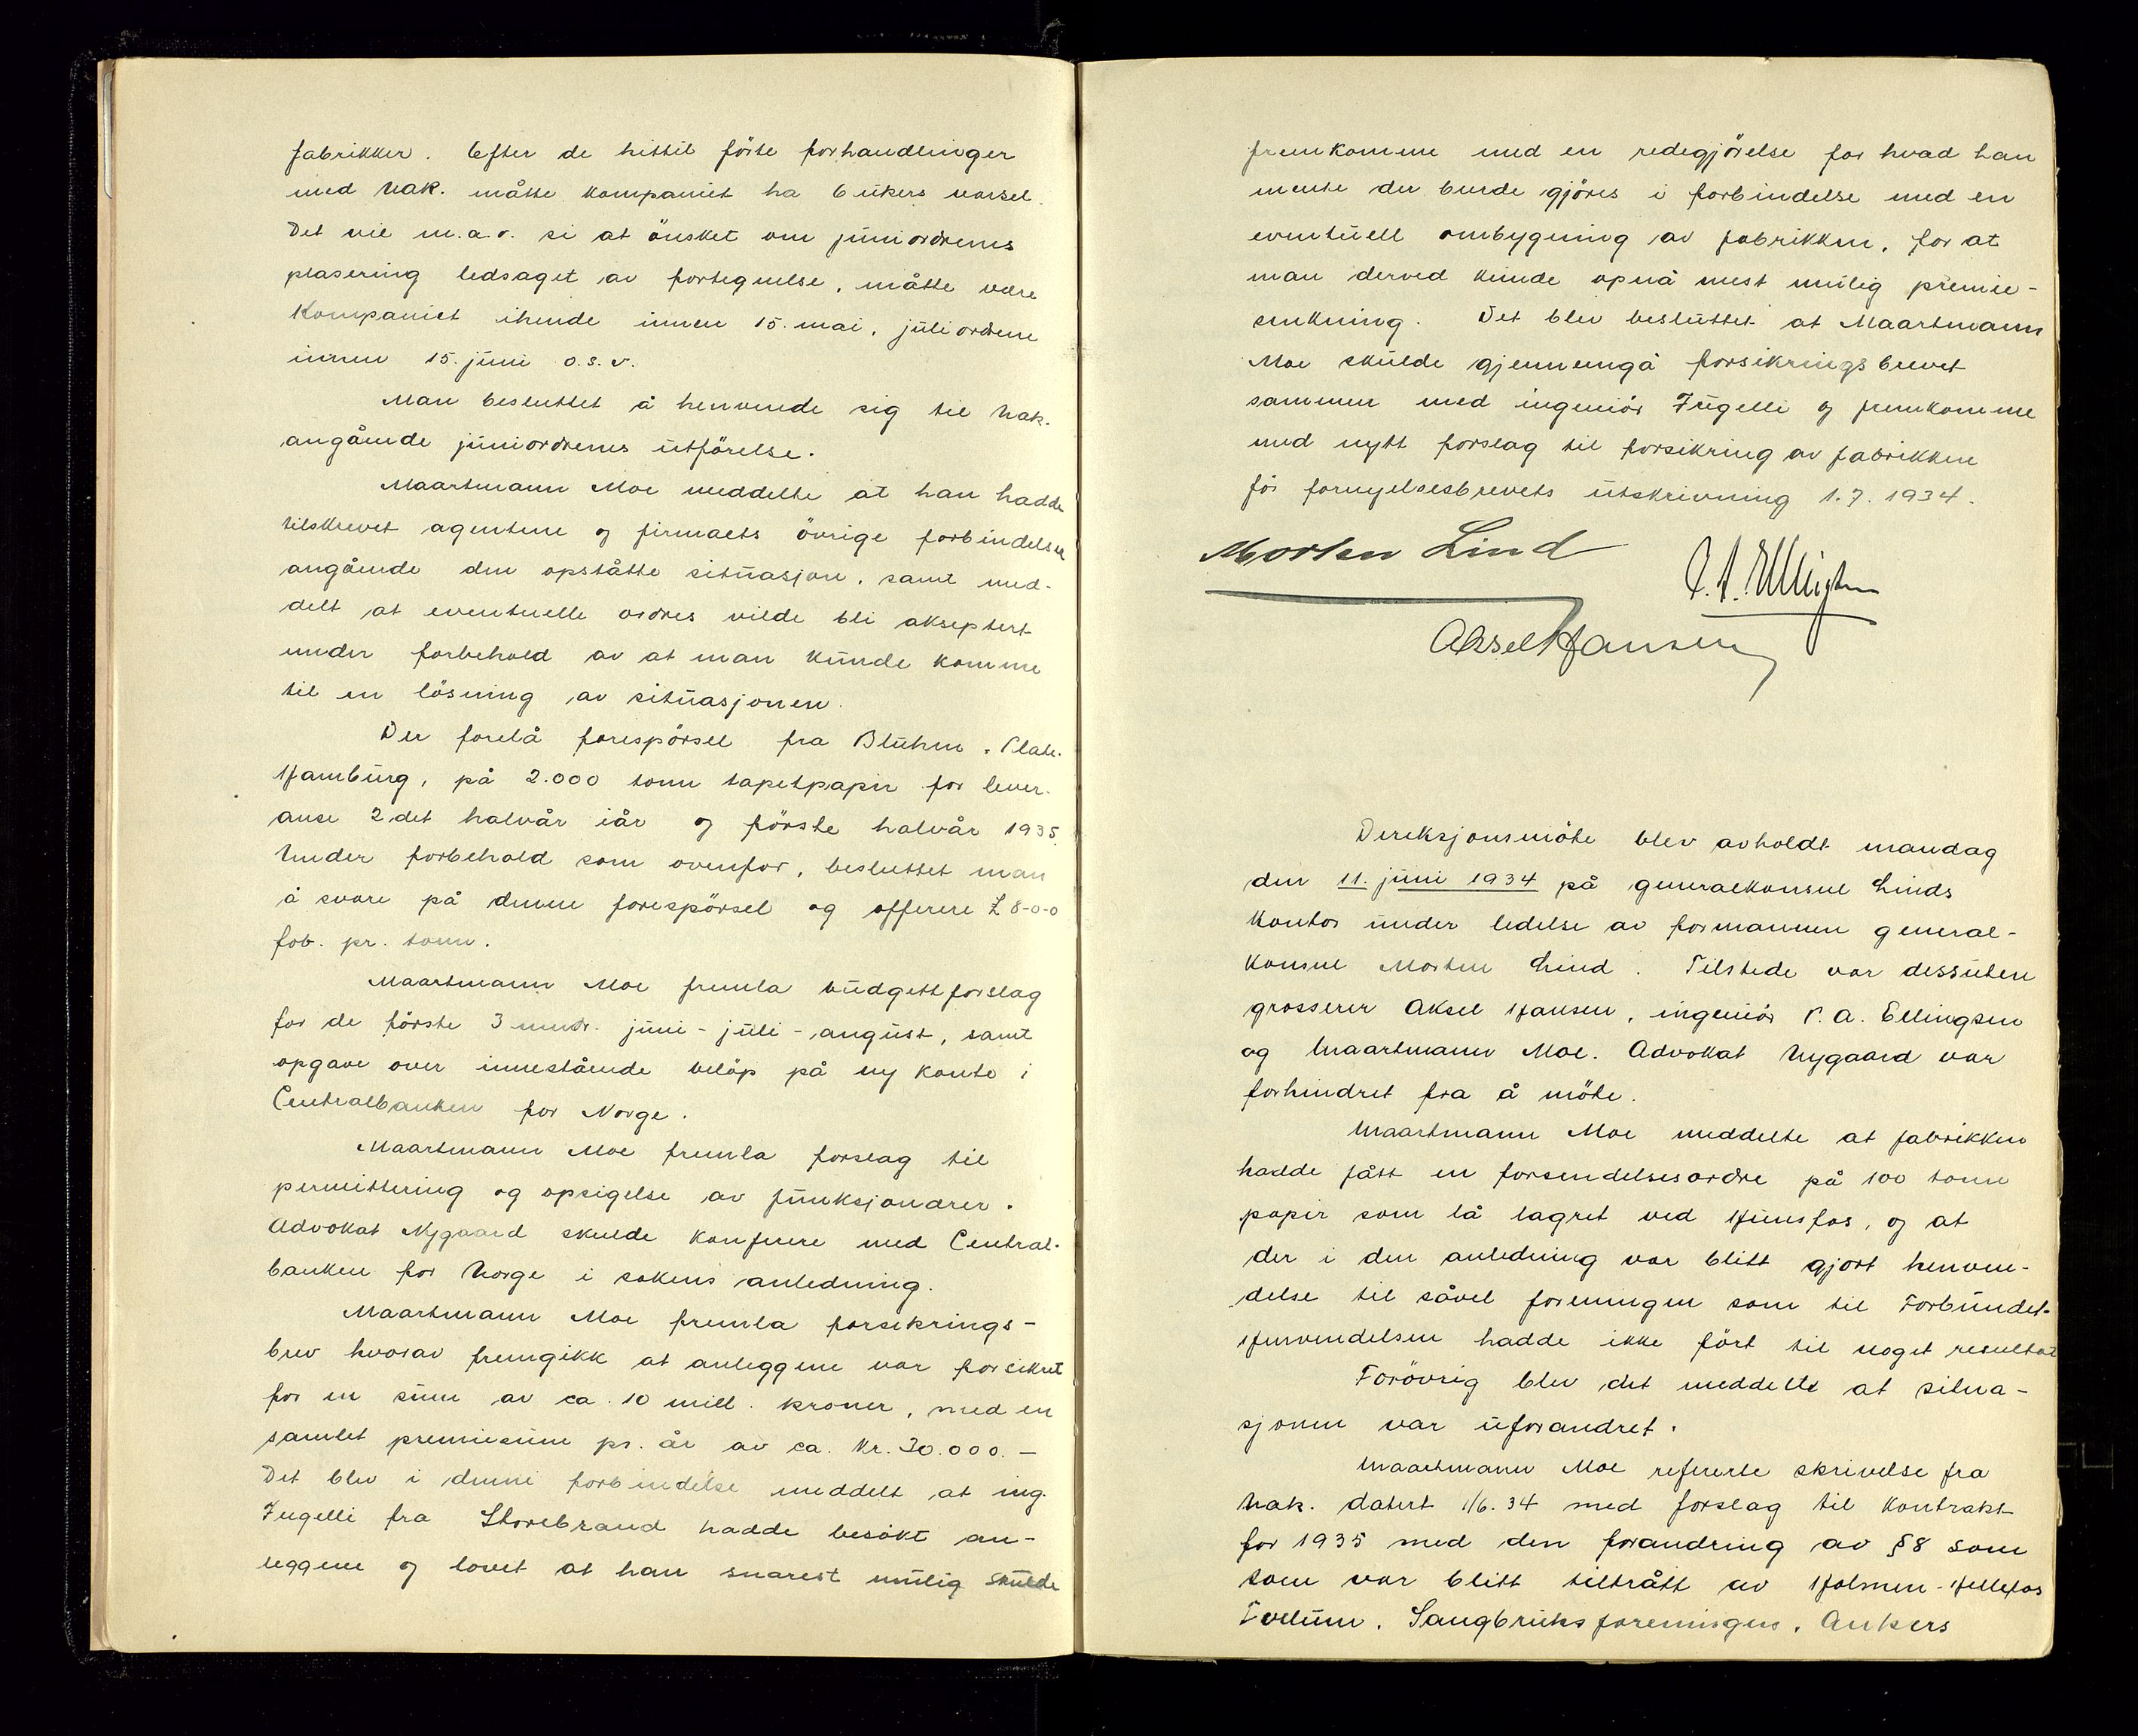 fabrikker. Efter de hittil förte forhandlinger
med Nak. måtte kompaniet ha 6 ukers varsel.
Det vil m.a.o. si at önsket om juniordrenes
plasering ledsaget av fortegnelse, måtte være
Kompaniet ihende innen 15. mai, juliordrene
innen 15. juni o.s.v.
Man besluttet å henvende sig til Nak.
angående juniordrenes utförelse.
Maartmann Moe meddelte at han hadde
tilskrevet agentene og firmaets övrige forbindelser
angående den opståtte situasjon, samt med-
delt at eventuelle ordres vilde bli akseptert
under forbehold av at man kunde komme
til en lösning av situasjonen.
Der forelå forespörsel fra Bluhm & Plate.
Hamburg, på 2.000 tonn tapetpapir for lever-
anse 2det halvår iår og förste halvår 1935.
Under forbehold som ovenfor, besluttet man
å svare på denne forespörsel og offerere £ 8-0-0
fob. pr. tonn.
Maartmann Moe fremla budgettforslag
for de förste 3 mndr. juni - juli - august, samt
opgave over innestående belöp på ny konto i
Centralbanken for Norge.
Maartmann Moe fremla forslag til
permittering og opsigelse av funksjonærer.
Advokat Nygaard skulde konferere med Central-
banken for Norge i sakens anledning.
Maartmann Moe fremla forsikrings-
brev hvorav fremgikk at anleggene var forsikret
for en sum av ca. 10 mill. kroner, med en
samlet premiesum pr. år av ca. kr. 30.000.-
Det blev i denne forbindelse meddelt at ing.
Fugelli fra Storebrand hadde besökt an-
leggene og lovet at han snarest mulig skulde
fremkomme med en redegjörelse for hvad han
mente der burde gjöres i forbindelse med en
eventuell ombygning av fabrikken, for at
man derved kunde opnå mest mulig premie-
senkning. Det blev besluttet at Maartmann
Moe skulde gjennemgå forsikringsbrevet
sammen med ingeniör Fugelli og fremkomme
med nytt forslag til forsikring av fabrikken
för fornyelsesbrevets utskrivning 1.7.1934.
Morten Lind
P. A. Ellingsen
Aksel Hansen
Dereksjonsmöte blev avholdt mandag
den 11. juni 1934 på generalkonsul Linds
Kontor under ledelse av formannen general-
konsul Morten Lind. Tilstede var dessuten
grosserer Aksel Hansen, ingeniör P. A. Ellingsen
og Maartmann Moe. Advokat Nygaard var
forhindret fra å möte.
Maartmann Moe meddelte at fabrikken
hadde fått en forsendelsesordre på 100 tonn
papir som lå lagret ved Hunsfos, og at
der i den anledning var blitt gjort henven-
delse til såvel foreningen som til Forbundet.
Henvendelsen hadde ikke fört til noget resultat
Forövrig blev det meddelte at situa-
sjonen var uforandret.
Maartmann Moe refererte skrivelse fra
Nak. datert 1/6.34 med forslag til Kontrakt
for 1935 med den forandring av §8 som
som var blitt tiltrått av Holmen-Hellefos
Tvelum. Sangbruksforeningen, Ankers